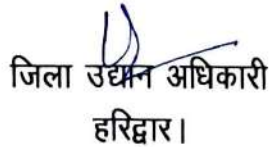 जिला उद्यान अधिकारी
हरिद्वार।